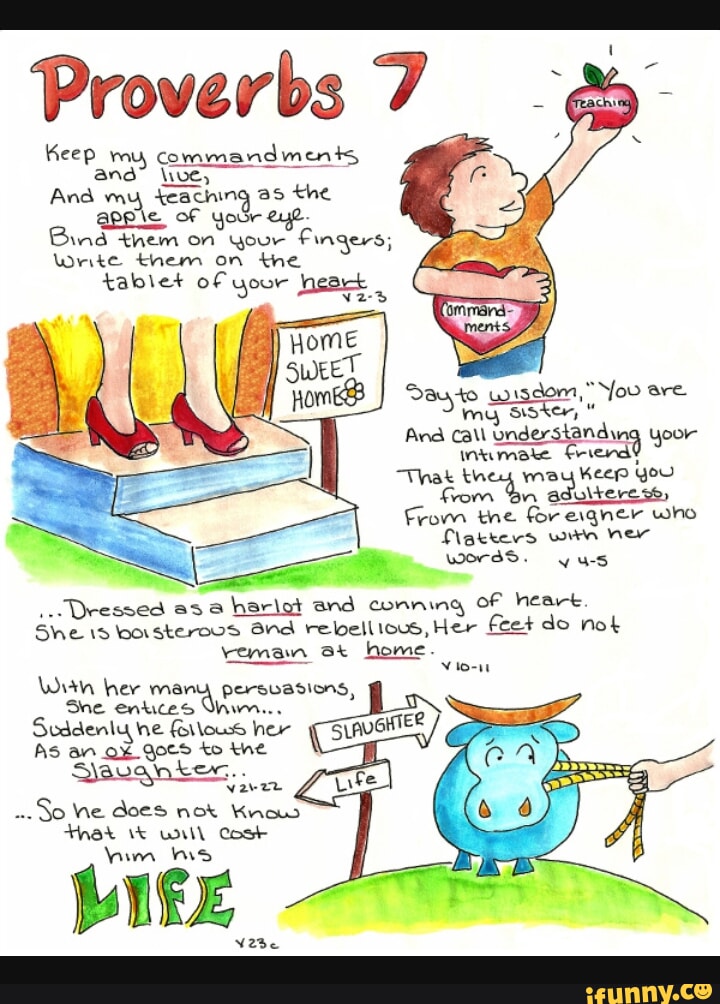 Proverbs 7
Teaching
Keep my commandments
and live,
And my teaching as the
apple of your eye.
Bind them on your fingers;
Write them on the
tablet of your heart
v 2-3
Command-
ments
HOME
SWEET
HOME
Say to wisdom, "You are
my sister,"
And call understanding your
intimate friend;
That they may keep you
from an adulteress,
From the foreigner who
flatters with her
words. v 4-5
...Dressed as a harlot and cunning of heart.
She is boisterous and rebellious, Her feet do not
remain at home.
v 10-11
With her many persuasions,
She entices him...
Suddenly he follows her
As an ox goes to the
Slaughter...
v 21-22
SLAUGHTER
Life
...So he does not know
that it will cost
him his
LIFE
v 23c
ifunny.co